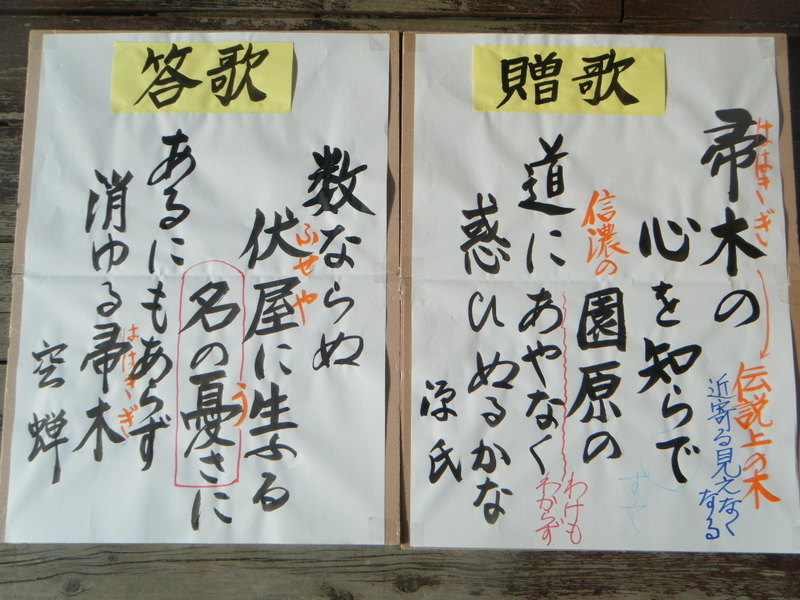 贈歌
帚木の
ははきぎ
伝説上の木
近寄る見えなく
なる
心を知らで
ずて
信濃の
園原の
わけも
わからず
道にあやなく
惑ひぬるかな
源氏
答歌
数ならぬ
ふせや
伏屋に生ふる
う
名の憂さに
あるにもあらず
ははきぎ
消ゆる帚木
空蝉